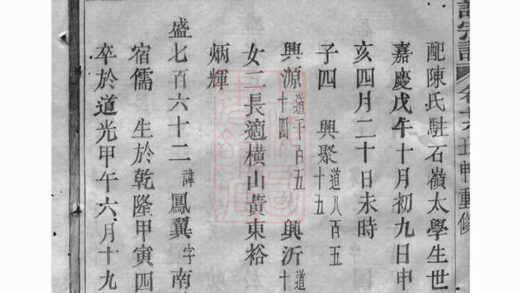 配陳氏駐石嶺太學生世
嘉慶戊午十月初九日申
亥四月二十日未時
子四 興聚道八百五十五
興源道千百五十四 興沂道十
女二長適橫山黃東裕
炳輝
盛七百六十二諱鳳翼字南
宿儒 生於乾隆甲寅四
卒於道光甲午六月十九